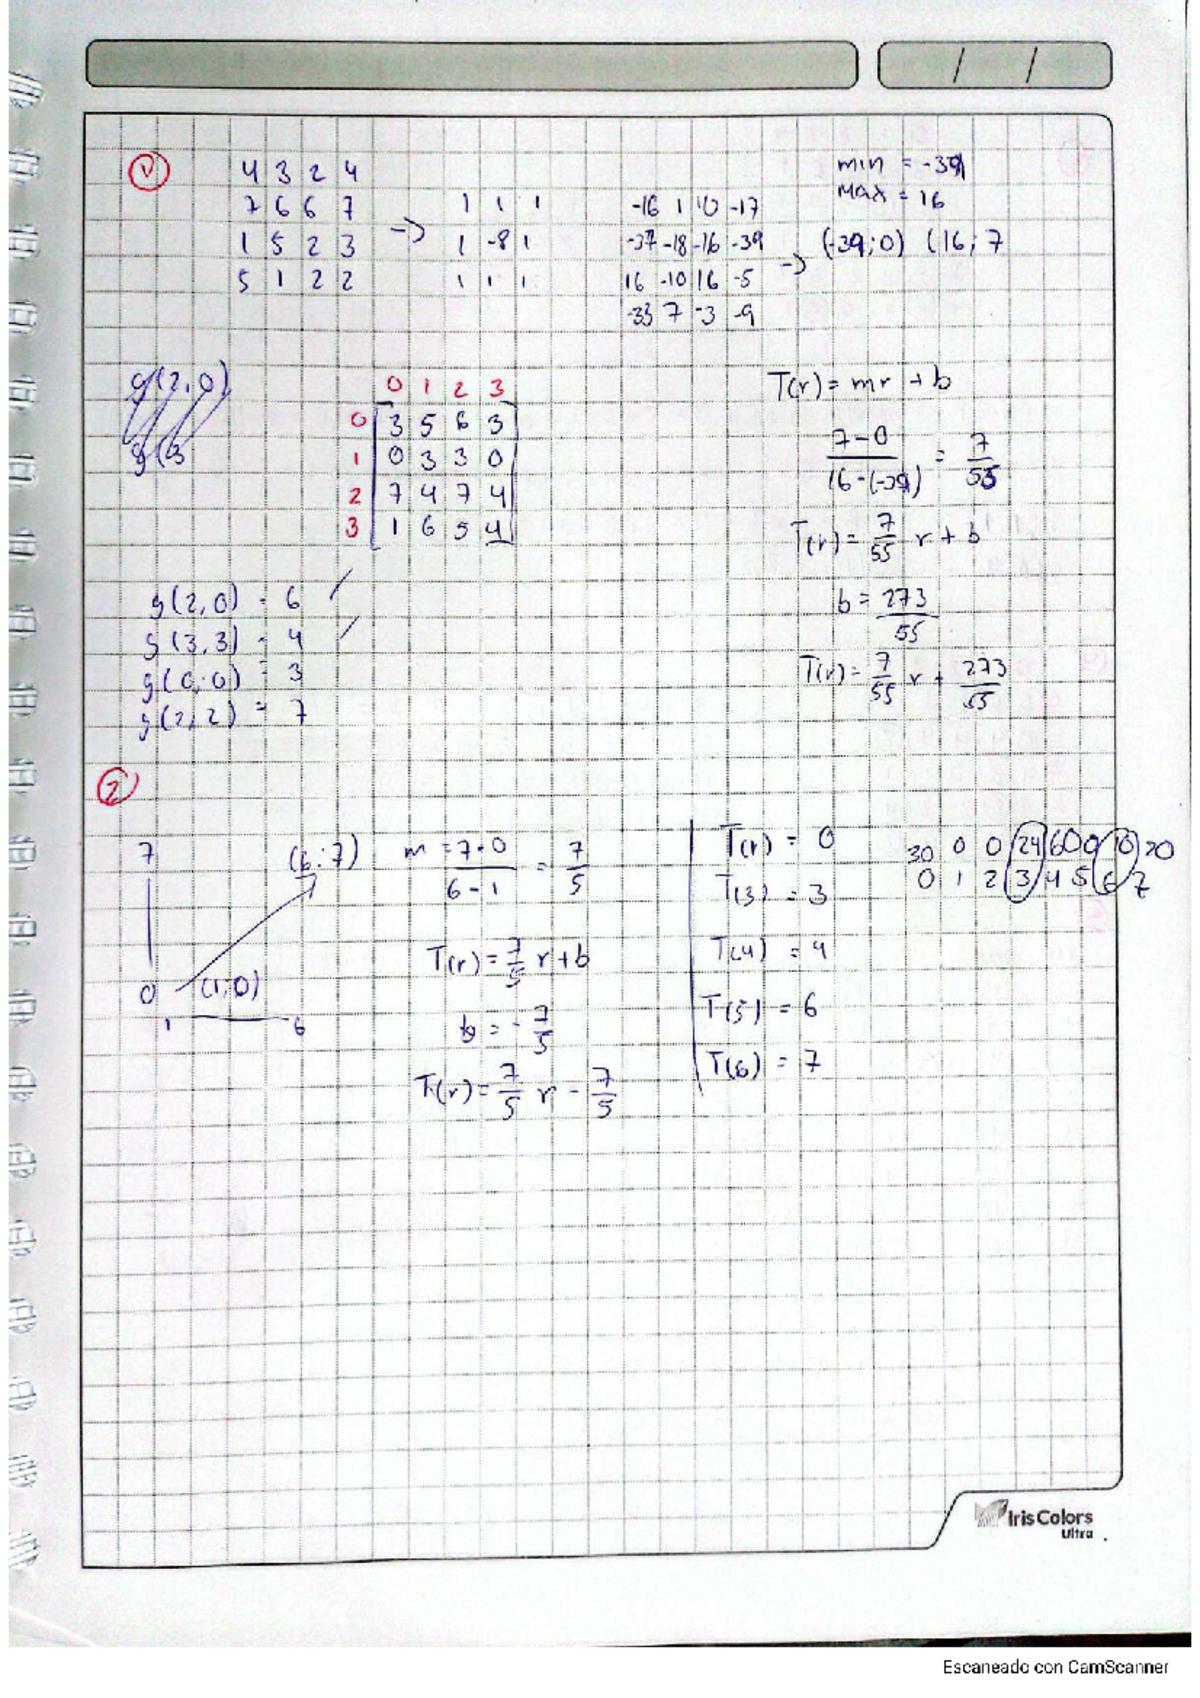 1)
4 3 2 4
7 6 6 7
1 5 2 3
5 1 2 2
->
1 1 1
1 -8 1
1 1 1
-16 1 10 -17
-37 -18 -16 -39
16 -10 16 -5
-33 7 -3 -9
->
min = -39
max = 16
(-39;0) (16;7
g(2,0)
g(3
0 1 2 3
0 3 5 6 3
1 0 3 3 0
2 7 4 7 4
3 1 6 5 4
g(2,0) = 6
g(3,3) = 4
g(0,0) = 3
g(2,2) = 7
T(r) = mr + b
7-0 / 16-(-39) = 7/55
T(r) = 7/55 r + b
b = 273/55
T(r) = 7/55 r + 273/55
2)
7
(6;7)
0
(1;0)
1
6
m = 7-0 / 6-1 = 7/5
T(r) = 7/5 r + b
b = -7/5
T(r) = 7/5 r - 7/5
T(r) = 0
T(3) = 3
T(4) = 4
T(5) = 6
T(6) = 7
30 0 0 24 60 0 20
0 1 2 3 4 5 6 7
Iris Colors
Ultra
Escaneado con CamScanner